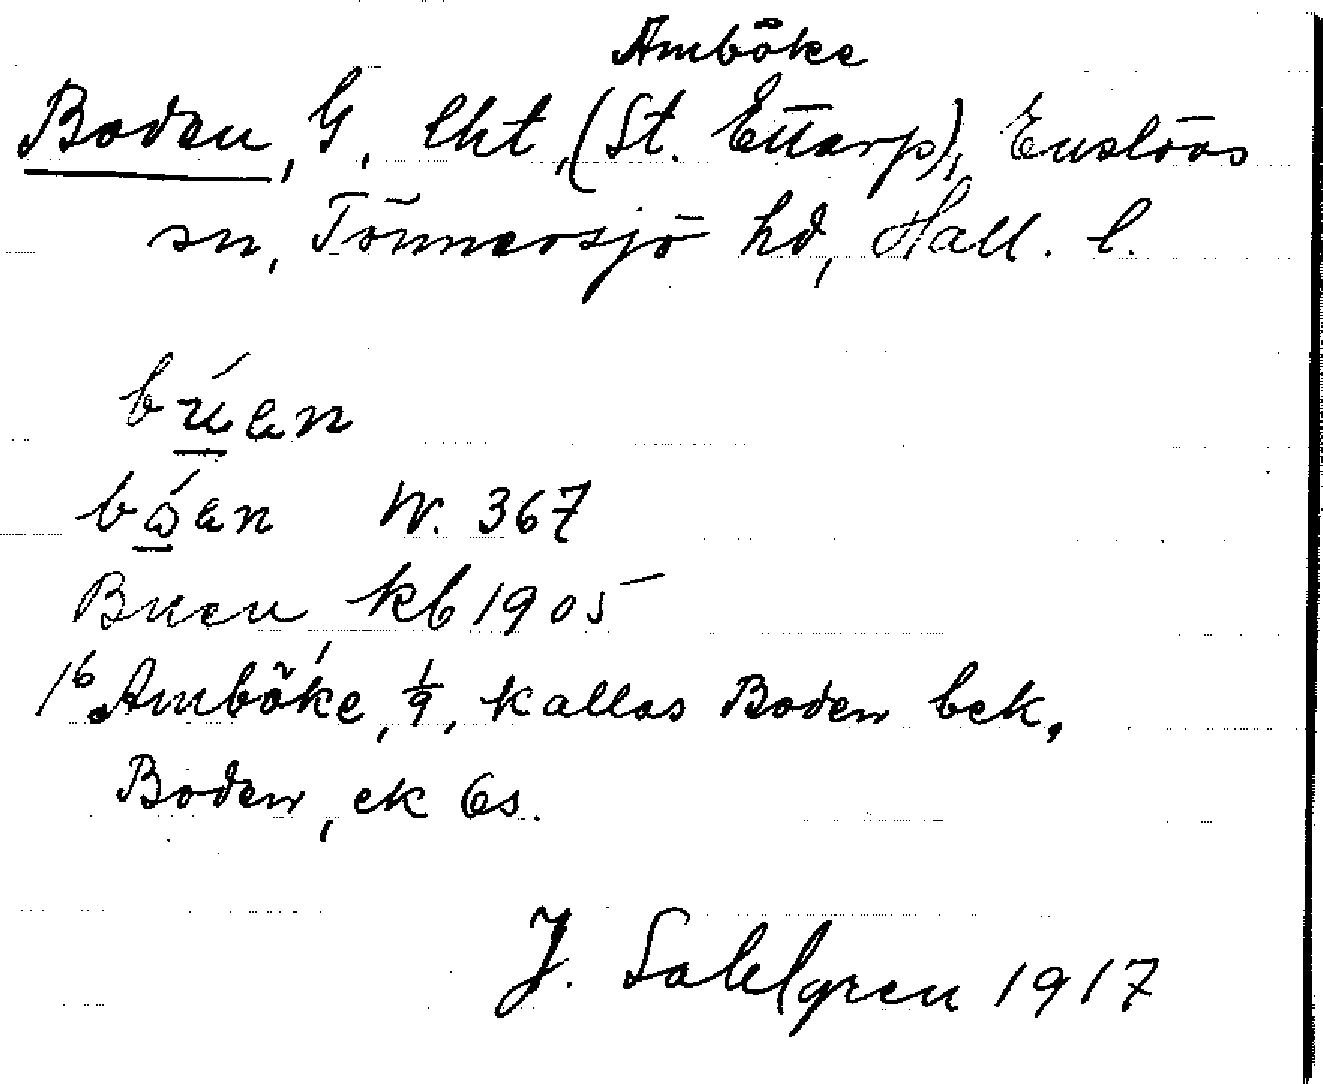 Amböke
Boden, G, lht, (St. Ettarp), Enslövs
sn, Tönnersjö hd, Hall. l.
búan
bóan W. 367
Buen kb 1905
16 Amböke, 1/9, kallas Boden bek,
Boden, ek bs.
J. Sahlgren 1917